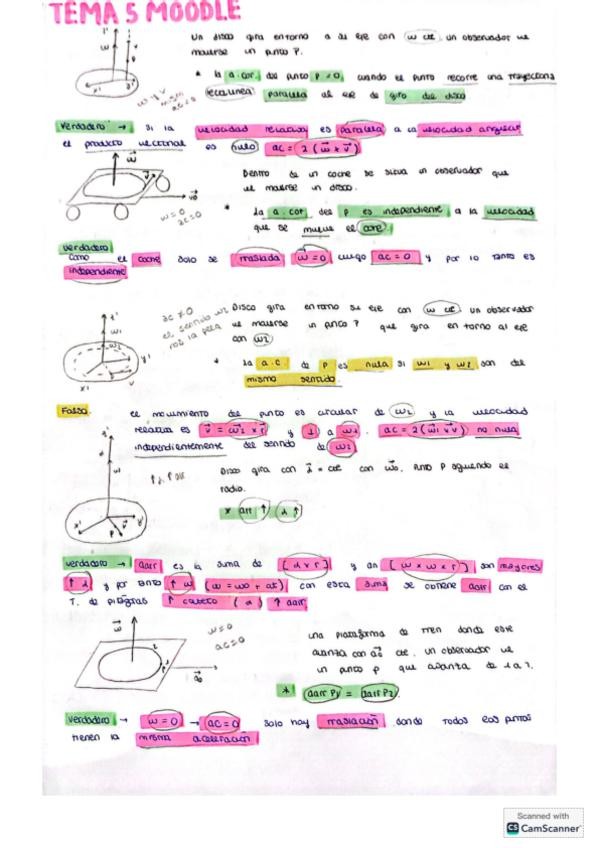 TEMA 5 MOODLE
Un disco gira entorno a su eje con w cte, un observador ve
moverse un punto P.
* la a.cor. del punto P=0, cuando el punto recorre una trayectoria
rectilinea paralela al eje de giro del disco
w // v
ac=0
verdadero → si la velocidad relativa es paralela a la velocidad angular
el producto vectorial es nulo ac = 2(w x v)
Dentro de un coche se situa un observador que
ve moverse un disco.
* la a.cor. del P es independiente a la velocidad
que se mueve el coche.
w=0
ac=0
verdadero
como el coche solo se traslada w=0 luego ac=0 y por lo tanto es
independiente
ac ≠ 0
el sentido w2
Disco gira entorno su eje con w cte un observador
ve moverse un punto P que gira en torno al eje
con w2
* la a.c. de P es nula si w1 y w2 son del
mismo sentido.
Falso. el movimiento del punto es circular de w2 y la velocidad
relativa es v = w2 x r y ⊥ a w2. ac = 2(w1 x v) no nula
independientemente del sentido de w2
Disco gira con α = cte con w0, punto P siguiendo el
radio.
* arr ↑ α ↑
verdadero → aarr es la suma de [α x r] y an [w x w x r] son mayores
↑ α y por tanto ↑ w (w = w0 + αt) con esta suma se obtiene aarr con el
T. de pitágoras ↑ cateto (α) ↑ aarr
w=0
ac=0
una plataforma de tren donde este
avanza con a0 cte, un observador ve
un punto p que avanza de 1 a 2.
* aarr P1 = aarr P2
verdadero → w=0 → ac=0 solo hay traslación donde todos los puntos
tienen la misma aceleración
Scanned with
CS CamScanner